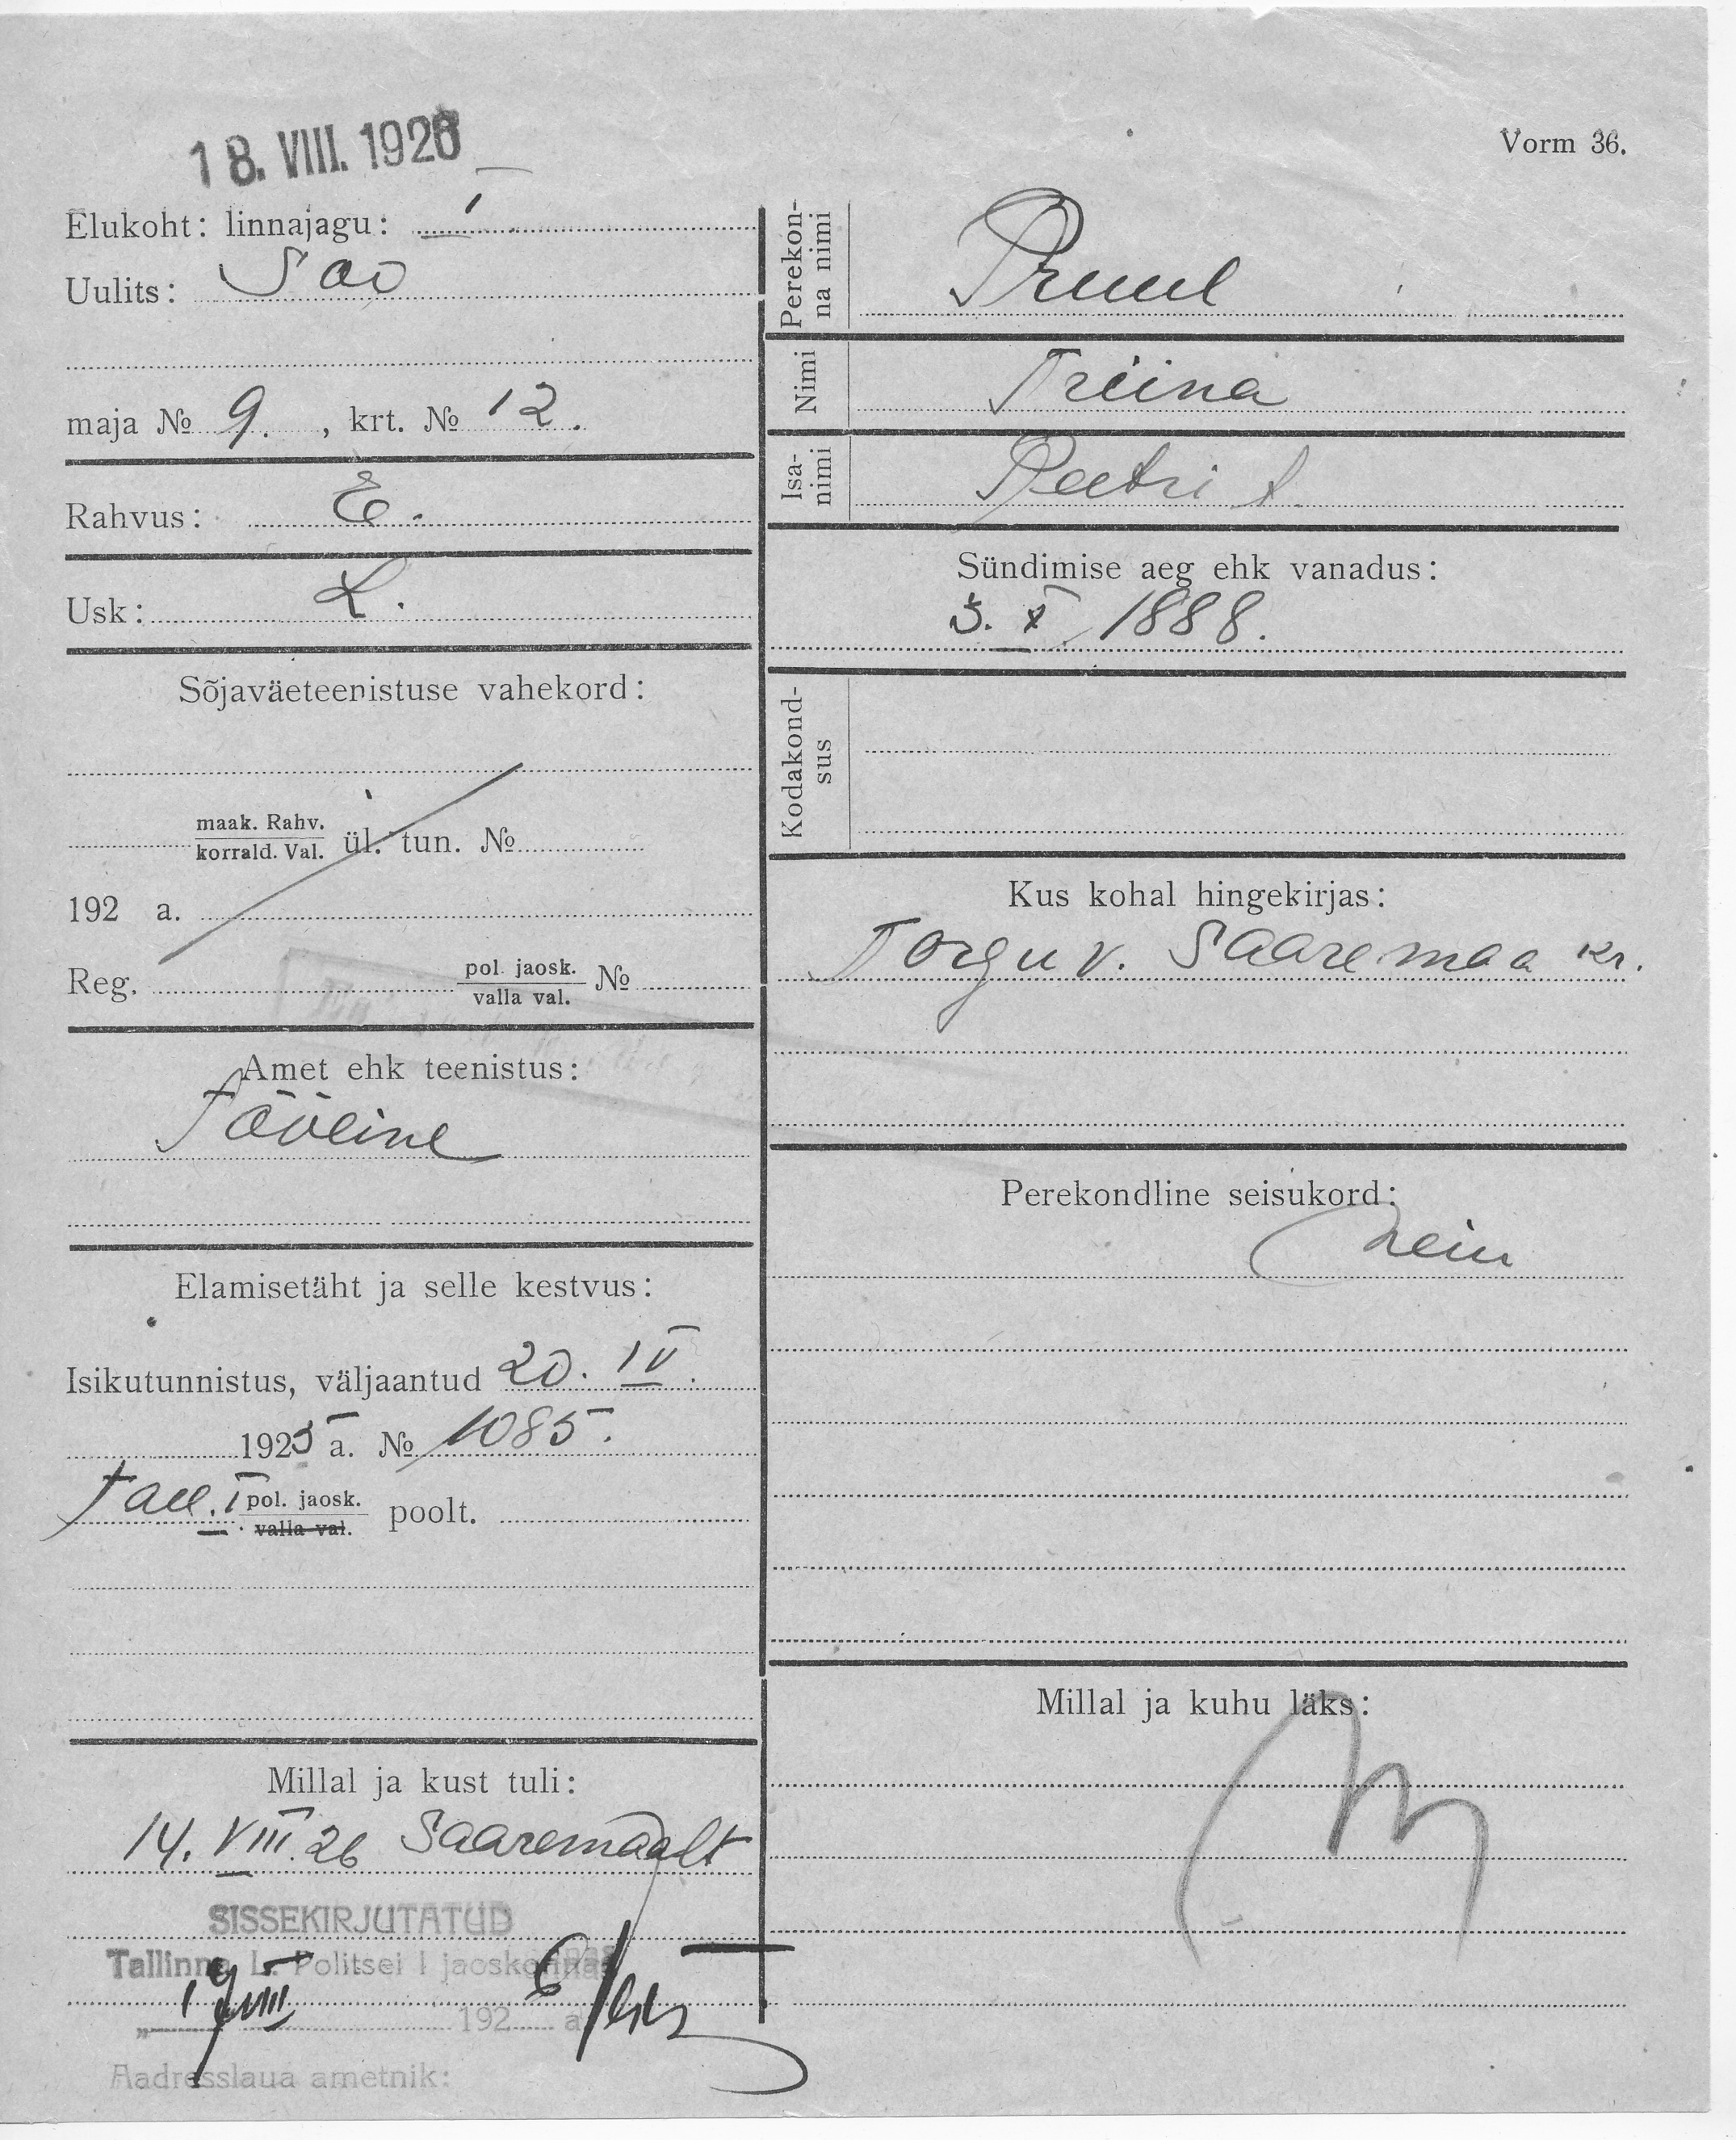 18. VIII. 1926
Vorm 36.
Elukoht: linnajagu: I
Uulits: Soo
maja № 9. , krt. № 12.
Rahvus: E.
Usk: L.
Sõjaväeteenistuse vahekord:
maak. Rahv.
korrald. Val. ül. tun. №
192 a.
Reg. pol. jaosk. №
valla val.
Amet ehk teenistus:
Tööline
Elamisetäht ja selle kestvus:
Isikutunnistus, väljaantud 20. IV.
1925 a. № 1085.
Tall. I pol. jaosk. poolt.
valla val.
Millal ja kust tuli:
14. VIII. 26 Saaremaalt
SISSEKIRJUTATUD
Tallinna L. Politsei I jaoskonnas
19 VIII 192 6 a
Aadresslaua ametnik:
Perekon-
na nimi
Pruul
Nimi Triina
Isa-
nimi
Peetri t.
Sündimise aeg ehk vanadus:
5. X. 1888.
Kodakond-
sus
Kus kohal hingekirjas:
Torgu v. Saaremaa kr.
Perekondline seisukord:
Millal ja kuhu läks: